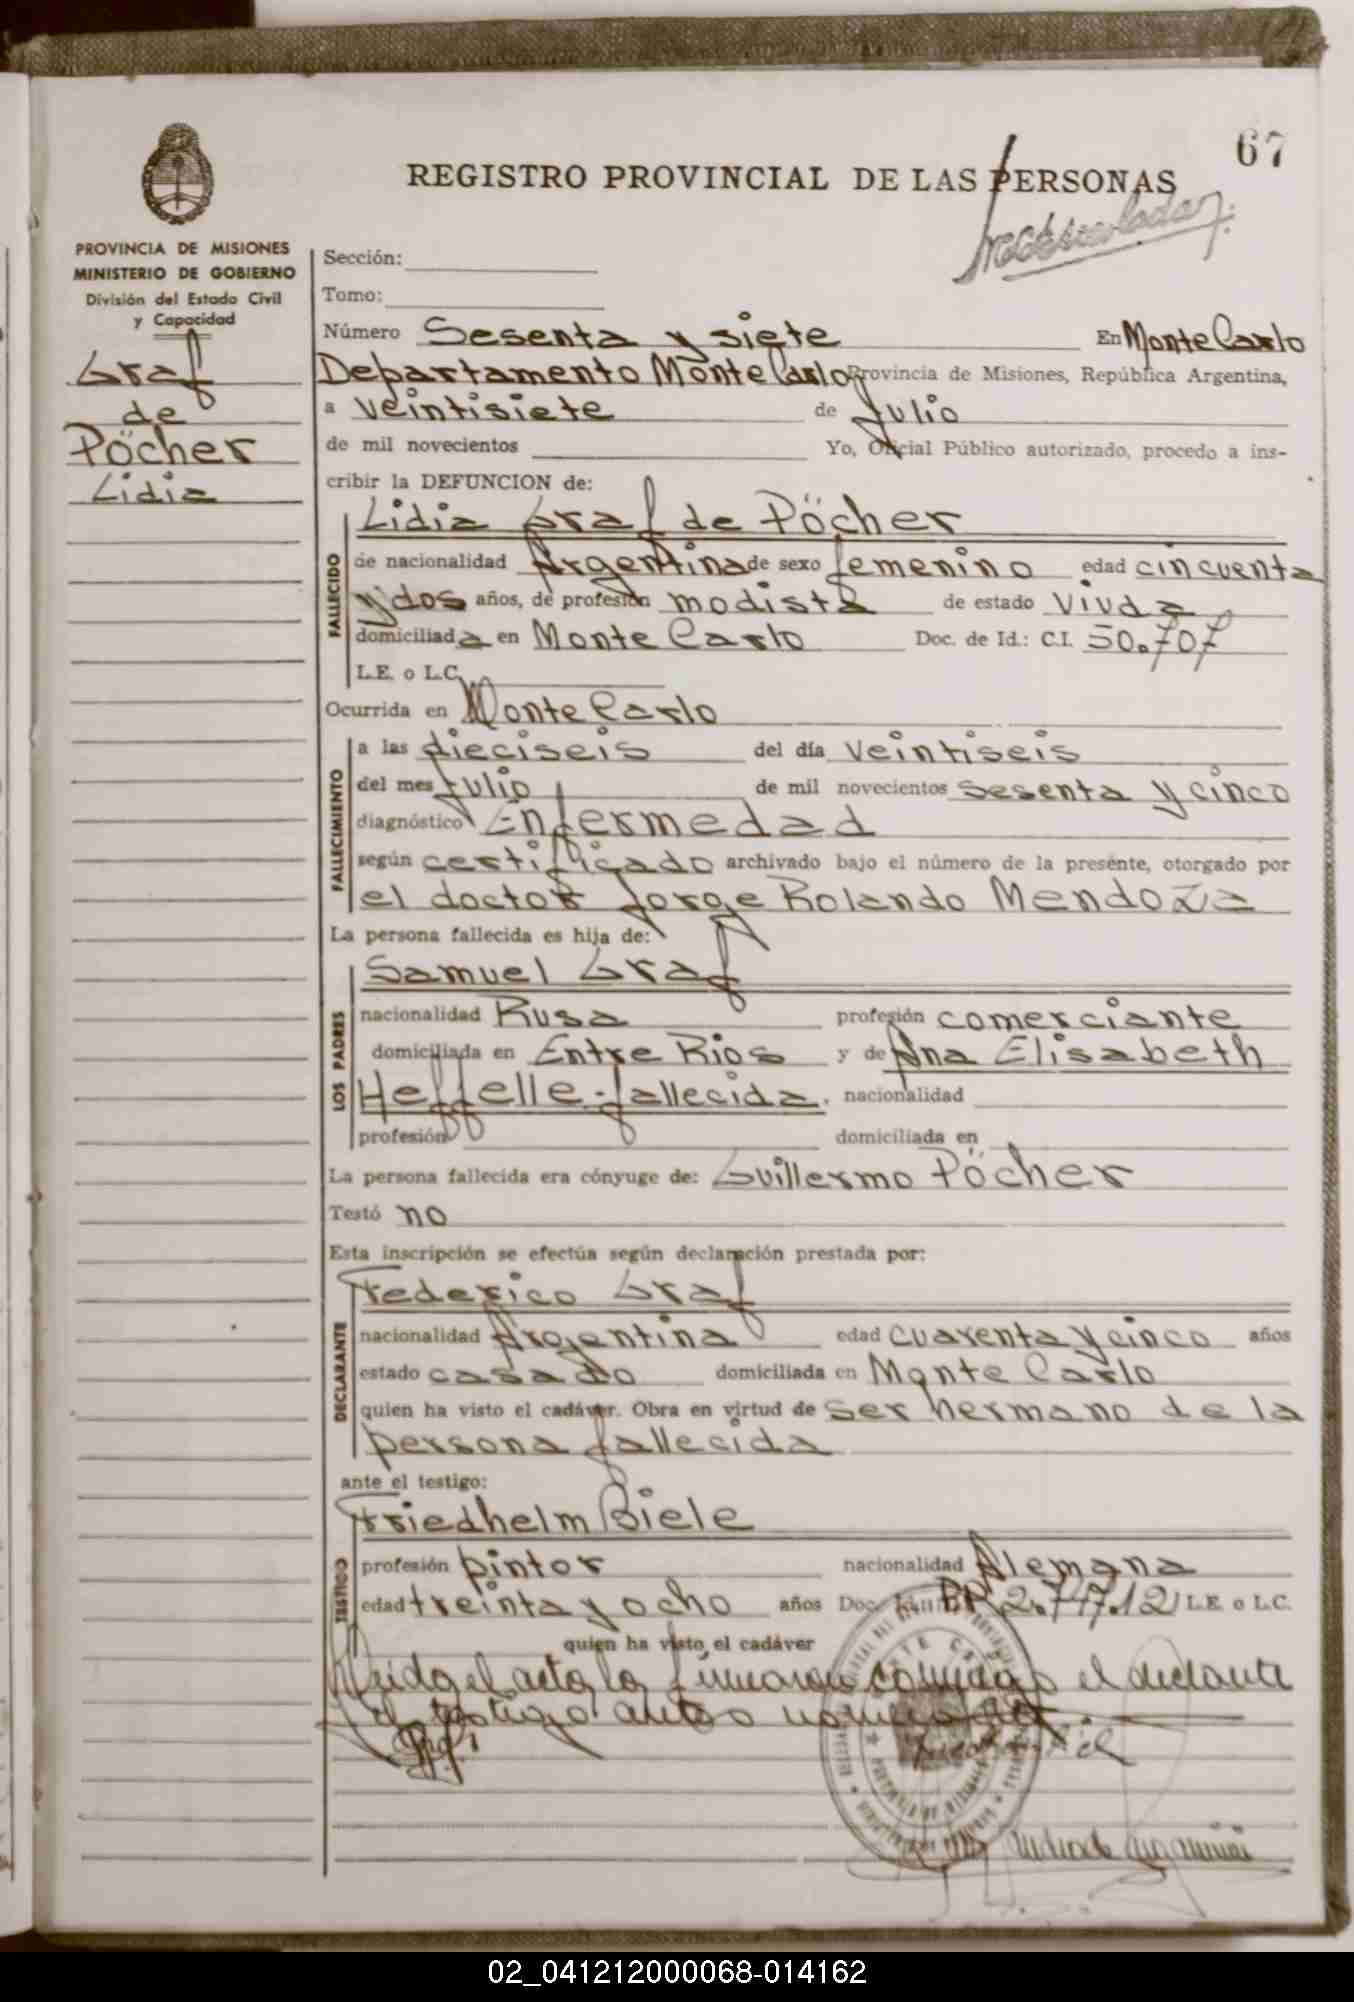 67
REGISTRO PROVINCIAL DE LAS PERSONAS
PROVINCIA DE MISIONES
MINISTERIO DE GOBIERNO
División del Estado Civil
y Capacidad
Graf
de
Pöcher
Lidia
Sección:
Tomo:
Número Sesenta y siete En Monte Carlo
Departamento Monte Carlo Provincia de Misiones, República Argentina,
a veintisiete de Julio
de mil novecientos Yo, Oficial Público autorizado, procedo a ins-
cribir la DEFUNCION de:
Lidia Graf de Pöcher
FALLECIDO
de nacionalidad Argentina de sexo femenino edad cincuenta
y dos años, de profesión modista de estado Viuda
domiciliada en Monte Carlo Doc. de Id.: C.I. 50.707
L.E. o L.C.
Ocurrida en Monte Carlo
FALLECIMIENTO
a las dieciseis del día veintiseis
del mes Julio de mil novecientos sesenta y cinco
diagnóstico Enfermedad
según certificado archivado bajo el número de la presente, otorgado por
el doctor Jorge Rolando Mendoza
La persona fallecida es hija de:
Samuel Graf
LOS PADRES
nacionalidad Rusa profesión comerciante
domiciliada en Entre Rios y de Ana Elisabeth
Heffelle-fallecida. nacionalidad
profesión domiciliada en
La persona fallecida era cónyuge de: Guillermo Pöcher
Testó no
Esta inscripción se efectúa según declaración prestada por:
Federico Graf
DECLARANTE
nacionalidad Argentina edad cuarenta y cinco años
estado casado domiciliada en Monte Carlo
quien ha visto el cadáver. Obra en virtud de ser hermano de la
persona fallecida
ante el testigo:
Friedhelm Biele
TESTIGO
profesión pintor nacionalidad Alemana
edad treinta y ocho años Doc. 2.747.121 L.E. o L.C.
quien ha visto el cadáver
Leida el acta la firmaron conmigo el declarante
y el testigo antes nombrado
02_041212000068-014162